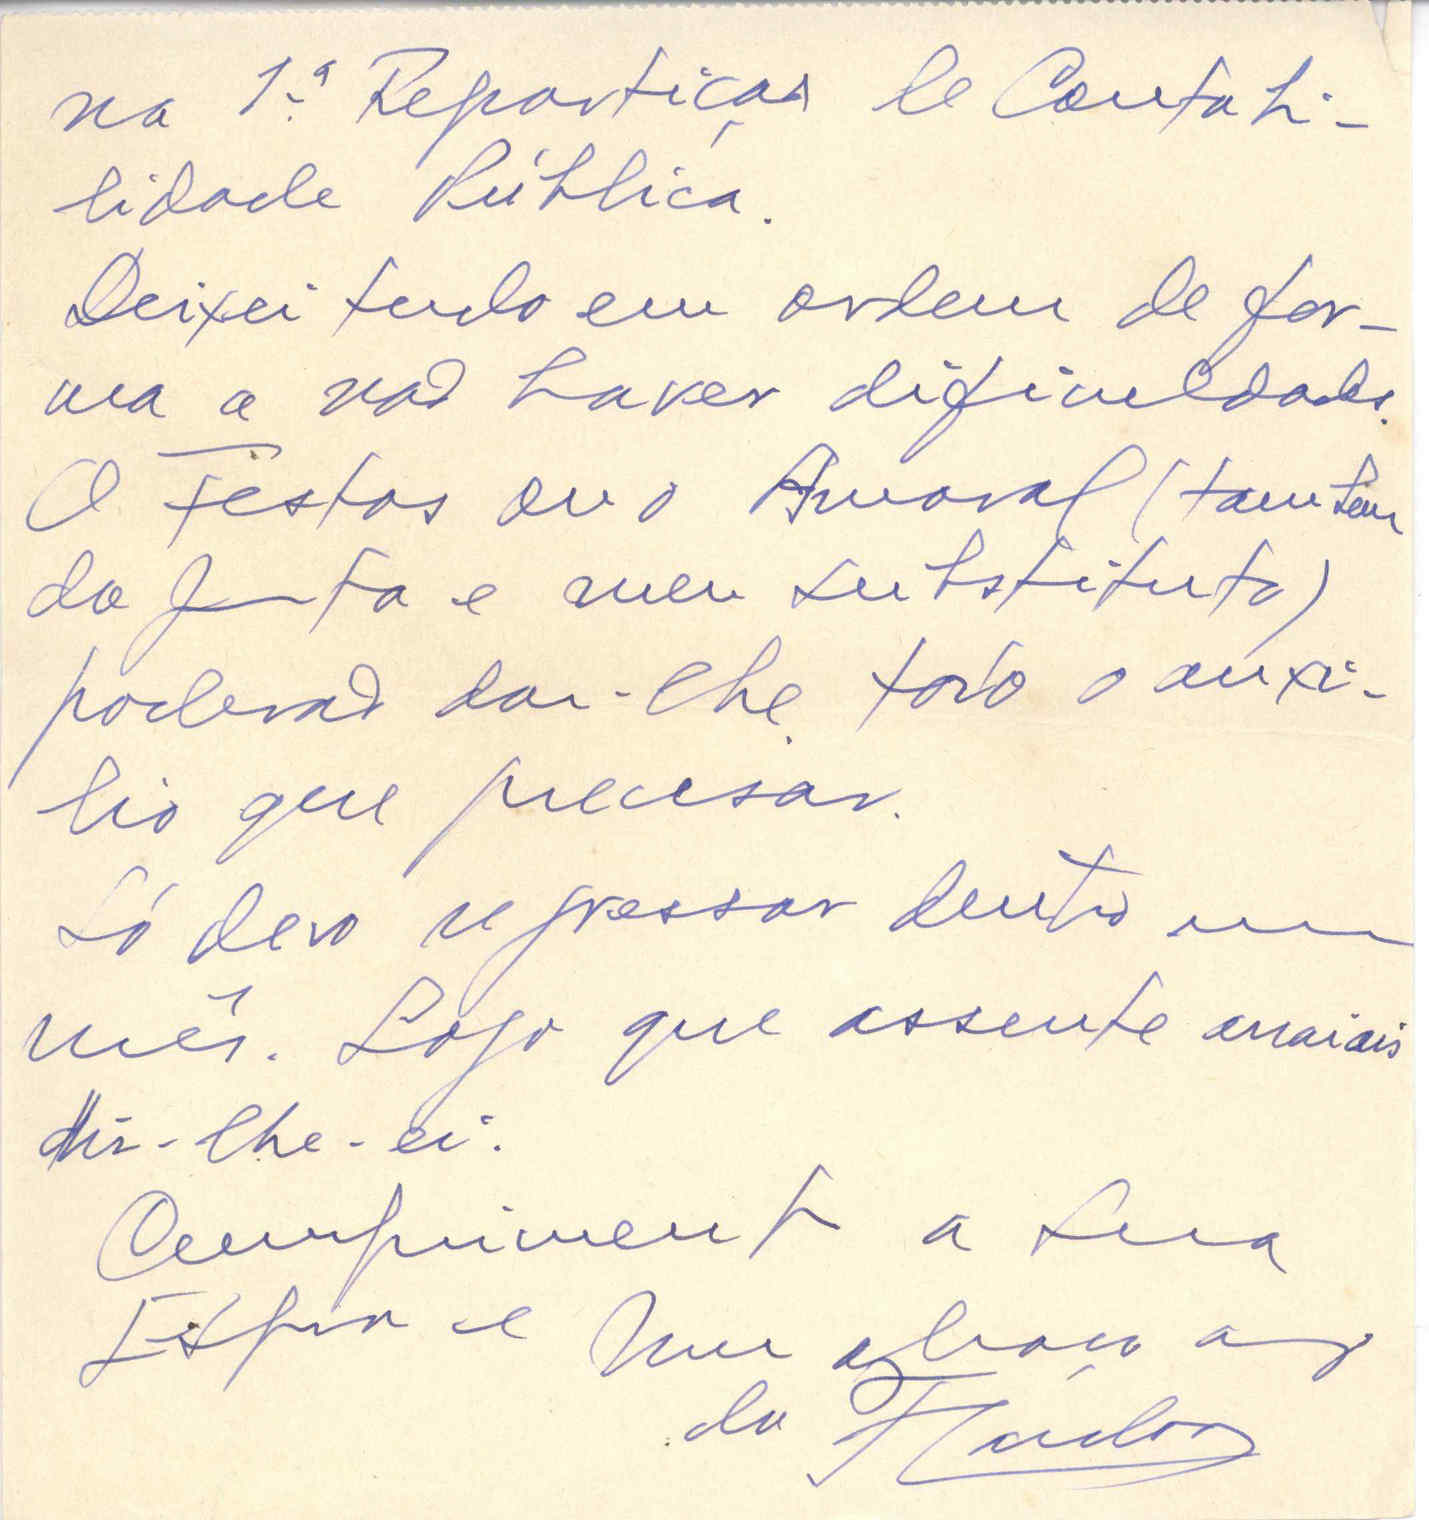 na 1.ª Repartição de Contabi-
lidade Pública.
Deixei tudo em ordem de for-
ma a não haver dificuldades.
O Festas ou o Amaral (também
da Junta e meu substituto)
poderão dar-lhe todo o auxí-
lio que precisar.
Só devo regressar dentro um
mês. Logo que assente arraiais
dir-lhe-ei.
Cumpriment a sua
Espsa e um abraço
do